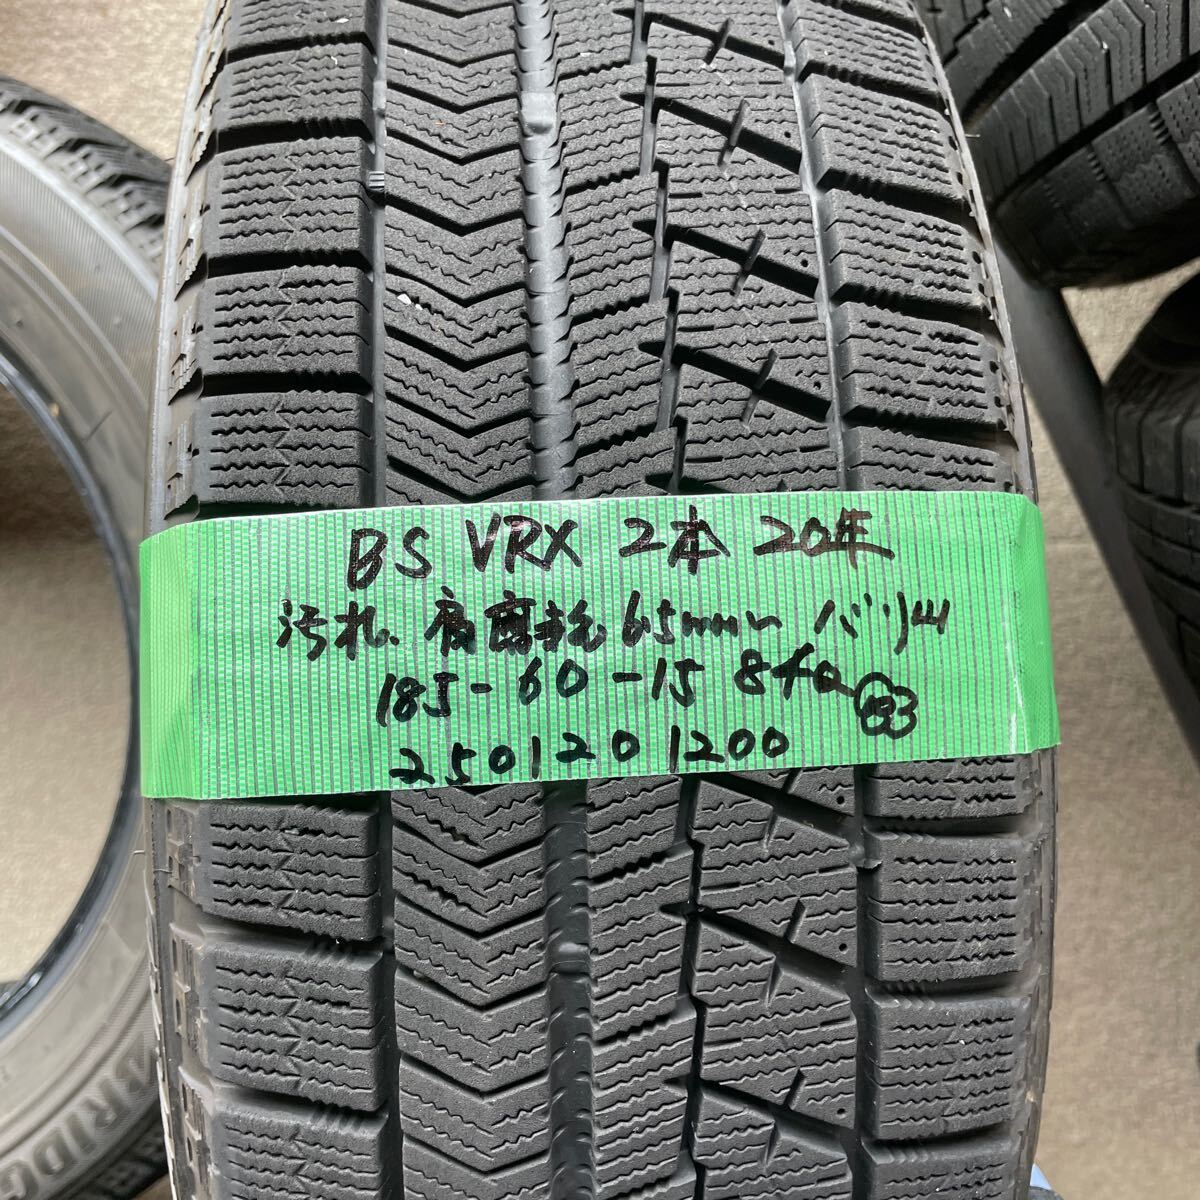 BS VRX 2本 20年
汚れ、肩磨耗6.5mm バリ山
185-60-15 84Q 83
2501201200
BRIDG